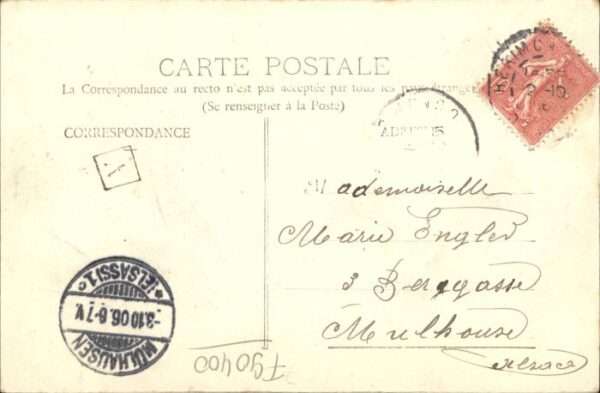 CARTE POSTALE
La Correspondance au recto n'est pas acceptée par tous les pays étrangers
(Se renseigner à la Poste)
CORRESPONDANCE
1
Mademoiselle
Marie Engler
3 Berggasse
Mulhouse
Alsace
MÜLHAUSEN
-3.10.06.6-7V.
*(ELSASS)1c
T90400